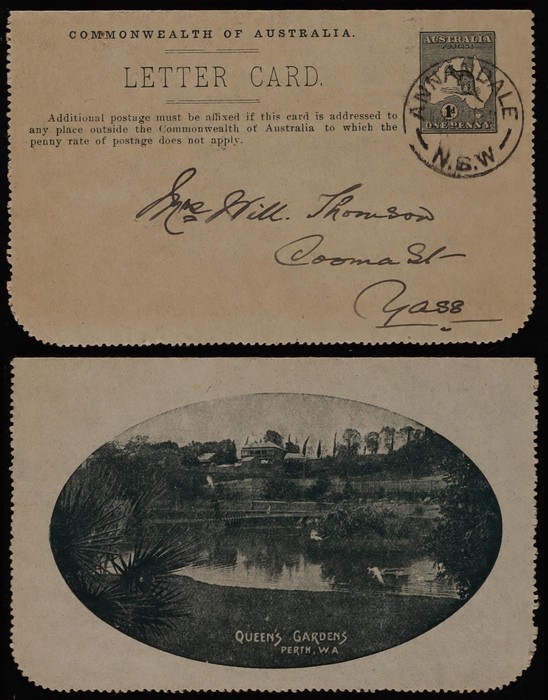 COMMONWEALTH OF AUSTRALIA.
LETTER CARD.
Additional postage must be affixed if this card is addressed to
any place outside the Commonwealth of Australia to which the
penny rate of postage does not apply.
AUSTRALIA
POSTAGE
1d
ONE PENNY
ANNANDALE
N.S.W
Mrs Will. Thomson
Cooma St
Yass
QUEENS GARDENS
PERTH, W.A